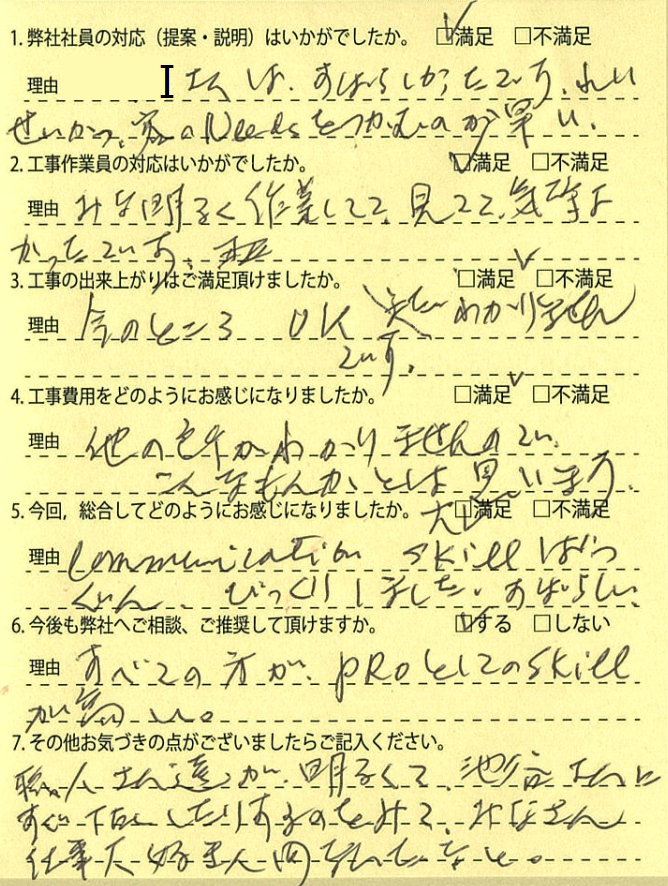 1. 弊社社員の対応（提案・説明）はいかがでしたか。 ☑満足 □不満足
理由 Iさんは、すばらしかったです。れい
せいかつ、客のNeedsをつかむのが早い。
2. 工事作業員の対応はいかがでしたか。 ☑満足 □不満足
理由 みな明るく作業してて、見てて、気持よ
かったです。
3. 工事の出来上がりはご満足頂けましたか。 □満足 □不満足
理由 今のところ OK まだわかりません
です。
4. 工事費用をどのようにお感じになりましたか。 □満足 □不満足
理由 他の わかりませんので、
こんなもんかとは思います。
5. 今回, 総合してどのようにお感じになりましたか。 大☑満足 □不満足
理由 Communication skillばつ
ぐん、びっくりしました。すばらしい
6. 今後も弊社へご相談、ご推奨して頂けますか。 ☑する □しない
理由 すべての方が、PROとしてのskill
が高い。
7. その他お気づきの点がございましたらご記入ください。
職人さん達が、明るくて、 さんに
すぐ したりするのをみて、みなさん
仕事大好き人間なんだなと。